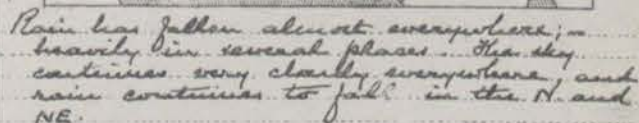 Rain has fallen almost everywhere; -
heavily in several places. The sky
continues very cloudy everywhere, and
rain continues to fall in the N. and
NE.